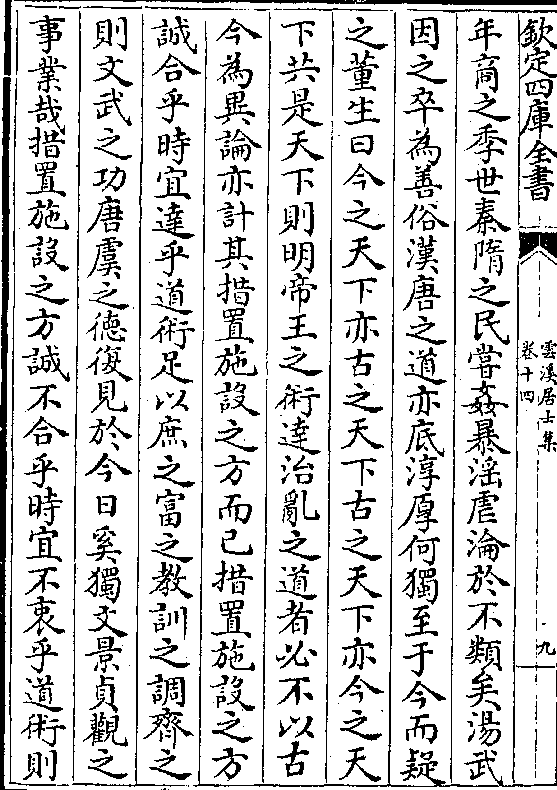 欽定四庫全書
雲溪居士集
卷十四
九
年商之季世秦隋之民嘗姦暴淫虐淪於不類矣湯武
因之卒為善俗漢唐之道亦底淳厚何獨至于今而疑
之董生曰今之天下亦古之天下古之天下亦今之天
下共是天下則明帝王之術達治亂之道者必不以古
今為異論亦計其措置施設之方而已措置施設之方
誠合乎時宜達乎道術足以庶之富之教訓之調齊之
則文武之功唐虞之德復見於今日奚獨文景貞觀之
事業哉措置施設之方誠不合乎時宜不衷乎道術則